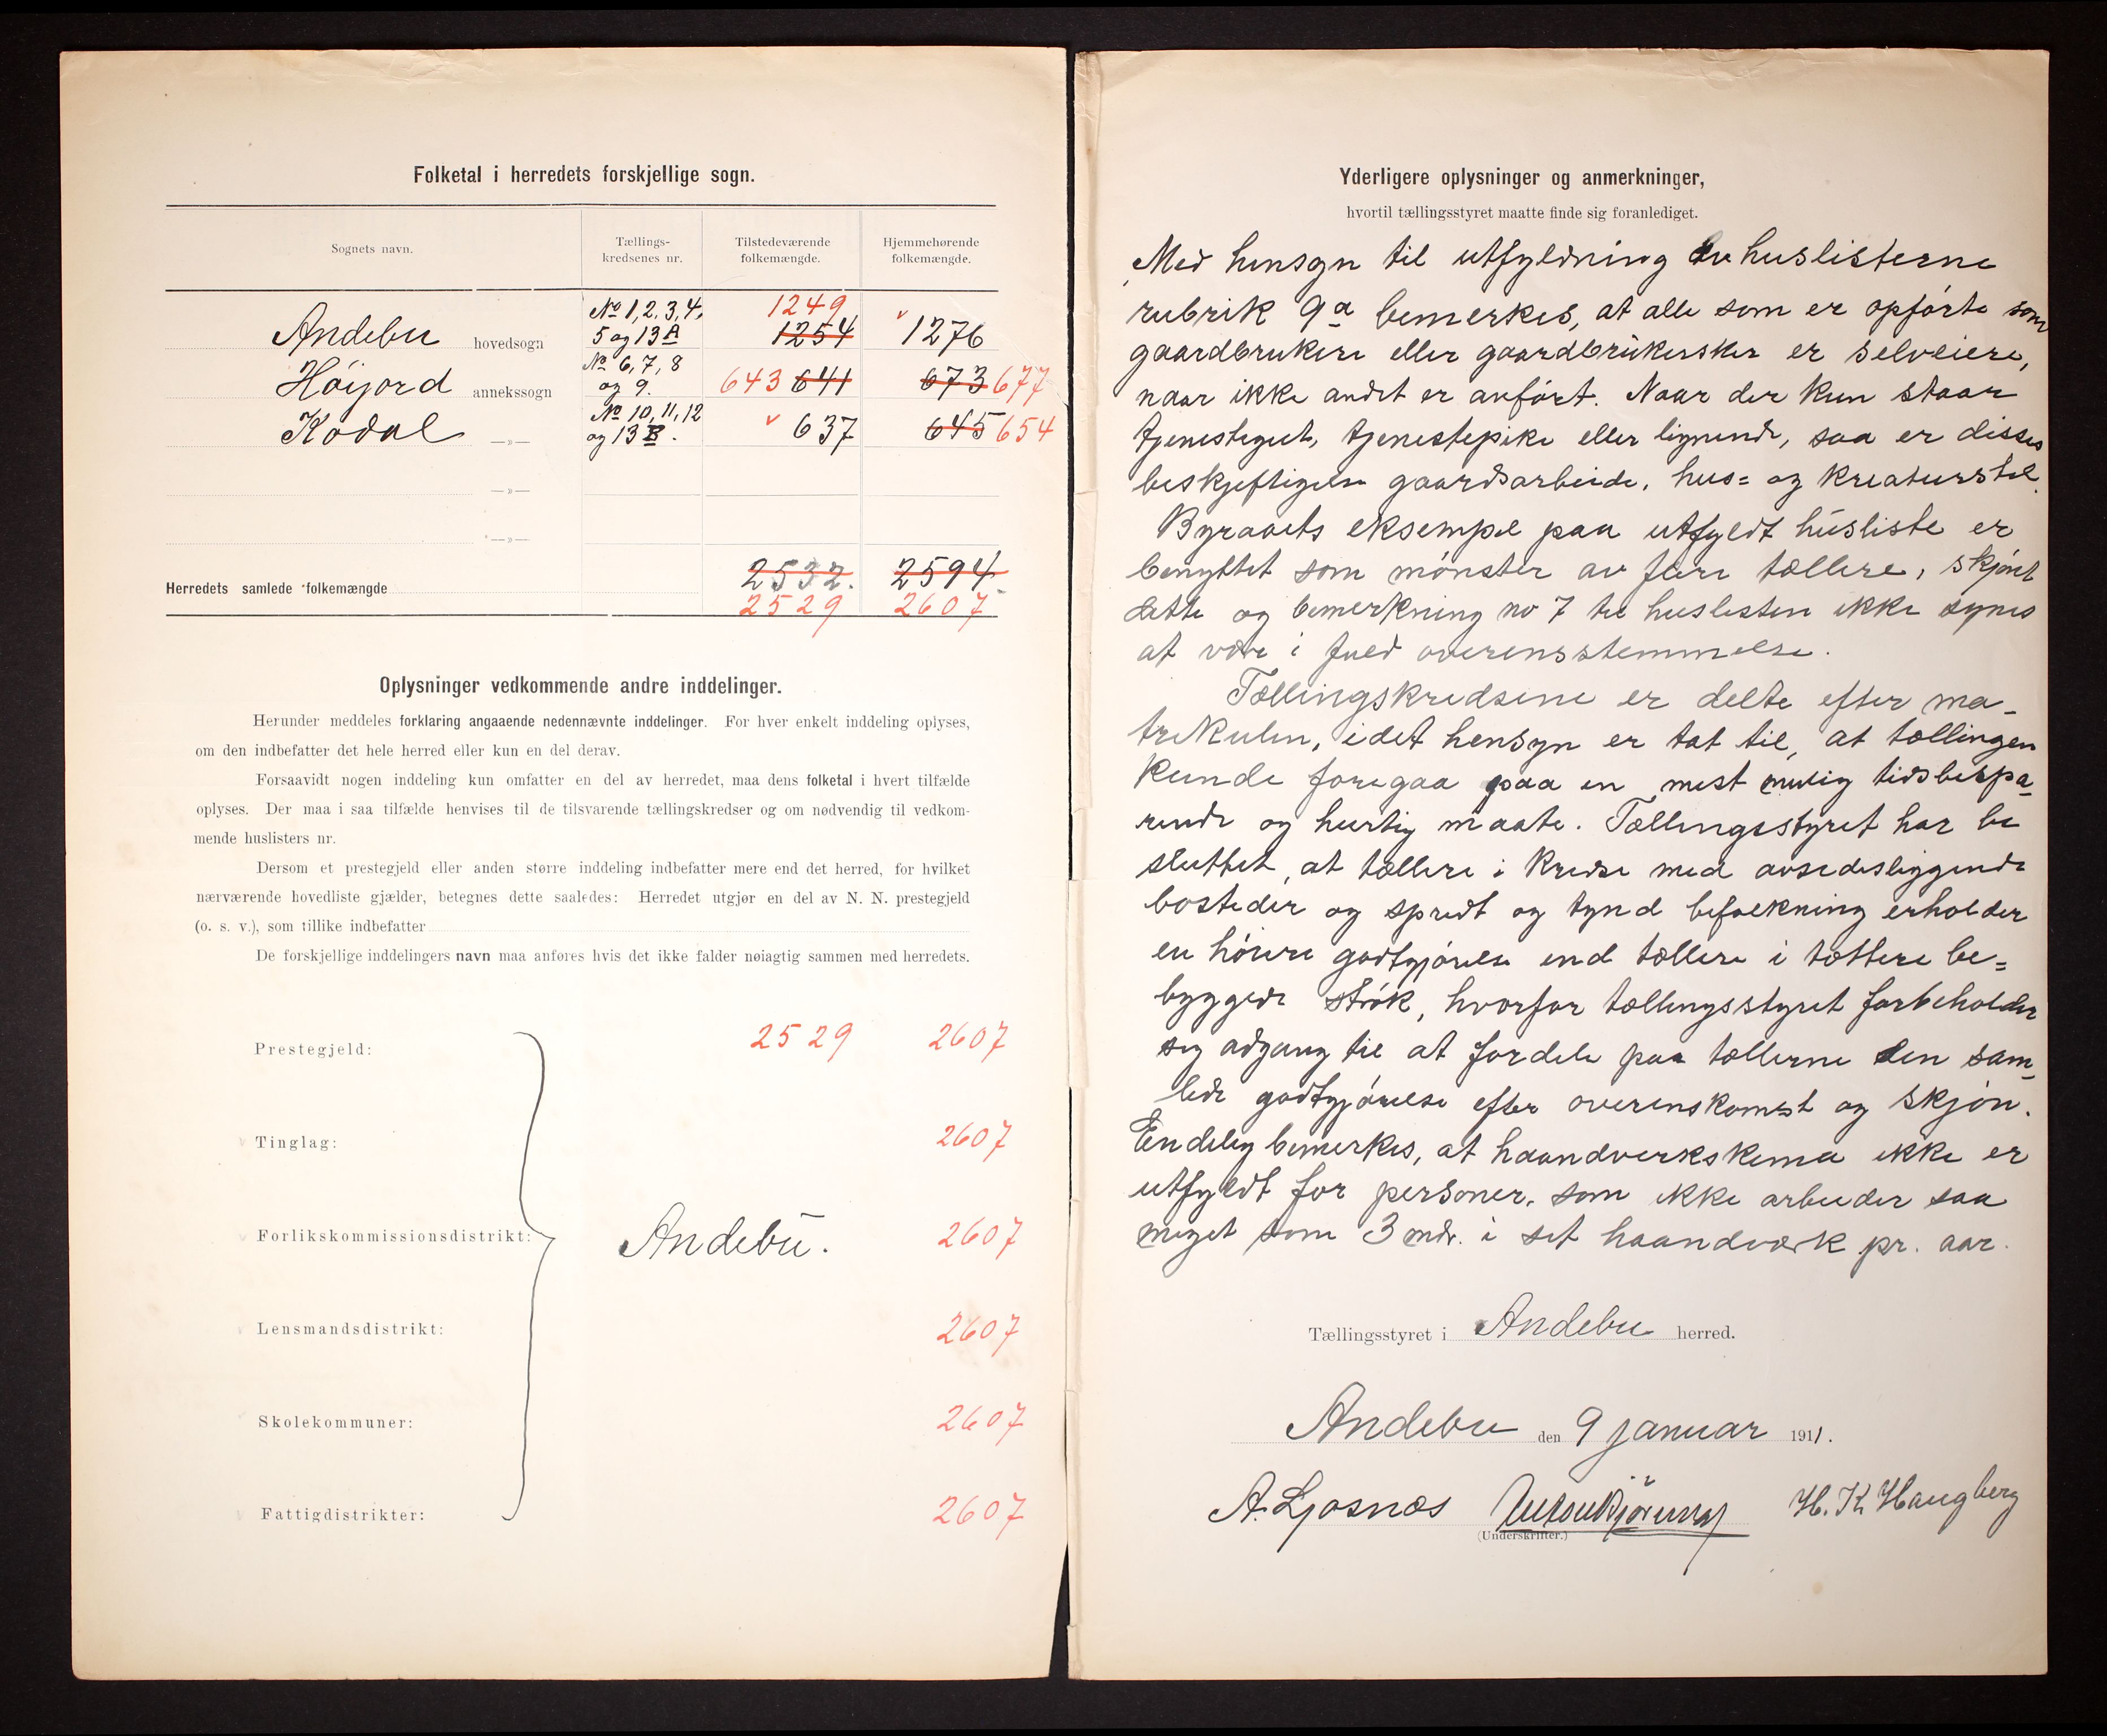 Folketal i herredets forskjellige sogn.
Sognets navn. Tællings-kredsenes nr. Tilstedeværende folkemængde. Hjemmehørende folkemængde.
No 1, 2, 3, 4, 1249
Andebu hovedsogn 5 og 13 A 1254 1276
No 6, 7, 8
Höijord annekssogn og 9. 643 641 673 677
No 10, 11, 12
Kodal —»— og 13 B. 637 645 654
—»—
—»—
2532. 2594.
Herredets samlede folkemængde
2529 2607
Oplysninger vedkommende andre inddelinger.
Herunder meddeles forklaring angaaende nedennævnte inddelinger. For hver enkelt inddeling oplyses,
om den indbefatter det hele herred eller kun en del derav.
Forsaavidt nogen inddeling kun omfatter en del av herredet, maa dens folketal i hvert tilfælde
oplyses. Der maa i saa tilfælde henvises til de tilsvarende tællingskredser og om nødvendig til vedkom-
mende huslisters nr.
Dersom et prestegjeld eller anden større inddeling indbefatter mere end det herred, for hvilket
nærværende hovedliste gjælder, betegnes dette saaledes: Herredet utgjør en del av N. N. prestegjeld
(o. s. v.), som tillike indbefatter
De forskjellige inddelingers navn maa anføres hvis det ikke falder nøiagtig sammen med herredets.
Prestegjeld: 2529 2607
Tinglag: 2607
Forlikskommissionsdistrikt: Andebu. 2607
Lensmandsdistrikt: 2607
Skolekommuner: 2607
Fattigdistrikter: 2607
Yderligere oplysninger og anmerkninger,
hvortil tællingsstyret maatte finde sig foranlediget.
Med hensyn til utfyldning av huslisterne
rubrik 9a bemerkes, at alle som er opförte som
gaardbrukere eller gaardbrukersker er selveiere,
naar ikke andet er anfört. Naar der kun staar
tjenestegut, tjenestepike eller lignende, saa er disses
beskjeftigelse gaardsarbeide, hus= og kreaturstel.
Byraaets eksempel paa utfyldt husliste er
benyttet som mönster av flere tællere, skjönt
dette og bemerkning no 7 til huslisten ikke synes
at være i fuld overensstemmelse.
Tællingskredsene er delte efter ma-
trikulen, idet hensyn er tat til, at tællingen
kunde foregaa paa en mest mulig tidsbespa-
rende og hurtig maate. Tællingsstyret har be
sluttet, at tællere i kredse med avsidesliggende
bosteder og spredt og tynd befolkning erholder
en höiere godtgjörelse end tællere i tættere be=
byggede strök, hvorfor tællingsstyret forbeholder
sig adgang til at fordele paa tællerne den sam-
lede godtgjörelse efter overenskomst og skjön.
Endelig bemerkes, at haandverkskema ikke er
utfyldt for personer, som ikke arbeider saa
meget som 3 mdr. i sit haandværk pr. aar.
Tællingsstyret i Andebu herred.
Andebu den 9 januar 1911.
A. Ljosnæs H. K. Haugberg
(Underskrifter.)